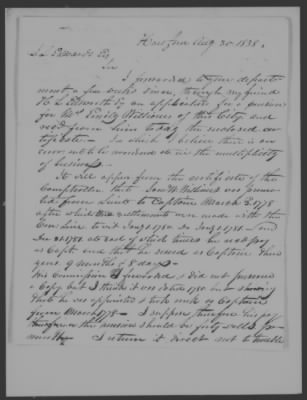 Hartford Aug 30. 1838.
J. L. Edwards Esq
Sir
I forwarded to your depart-
ment a few weeks since, through my friend
H. L. Ellsworth Esq an application for a pension
for Mrs Emily Williams of this City and
recd from him today the enclosed cer-
tificate - In which I believe there is an
error not to be wondered at in the multiplicity
of business -
It will appear from the certificate of the
Comptroller that W. Williams was promo-
ted from Lieut to Captain March 2. 1778
after which settlements were made with the
Conn Line to viz Jany 1. 1780 - Jany 1. 1781 - and
1781. at each of which times he recd pay
as Capt and that he served as Captain three
years 9 months & 8 days -
His Commission I forwarded & did not preserve
a Copy but I think it was dated 1780 but showing
that he was appointed & took rank as Captain
from March 1778 - I suppose therefore his pay
therefore the pension should be forty dolls pr
month - I return it direct not to trouble